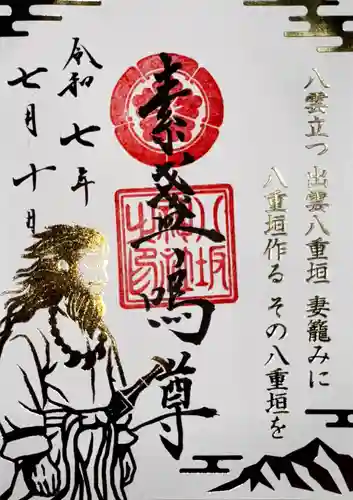 八雲立つ 出雲八重垣 妻籠みに
八重垣作る その八重垣を
素盞嗚尊
令和七年
七月十日